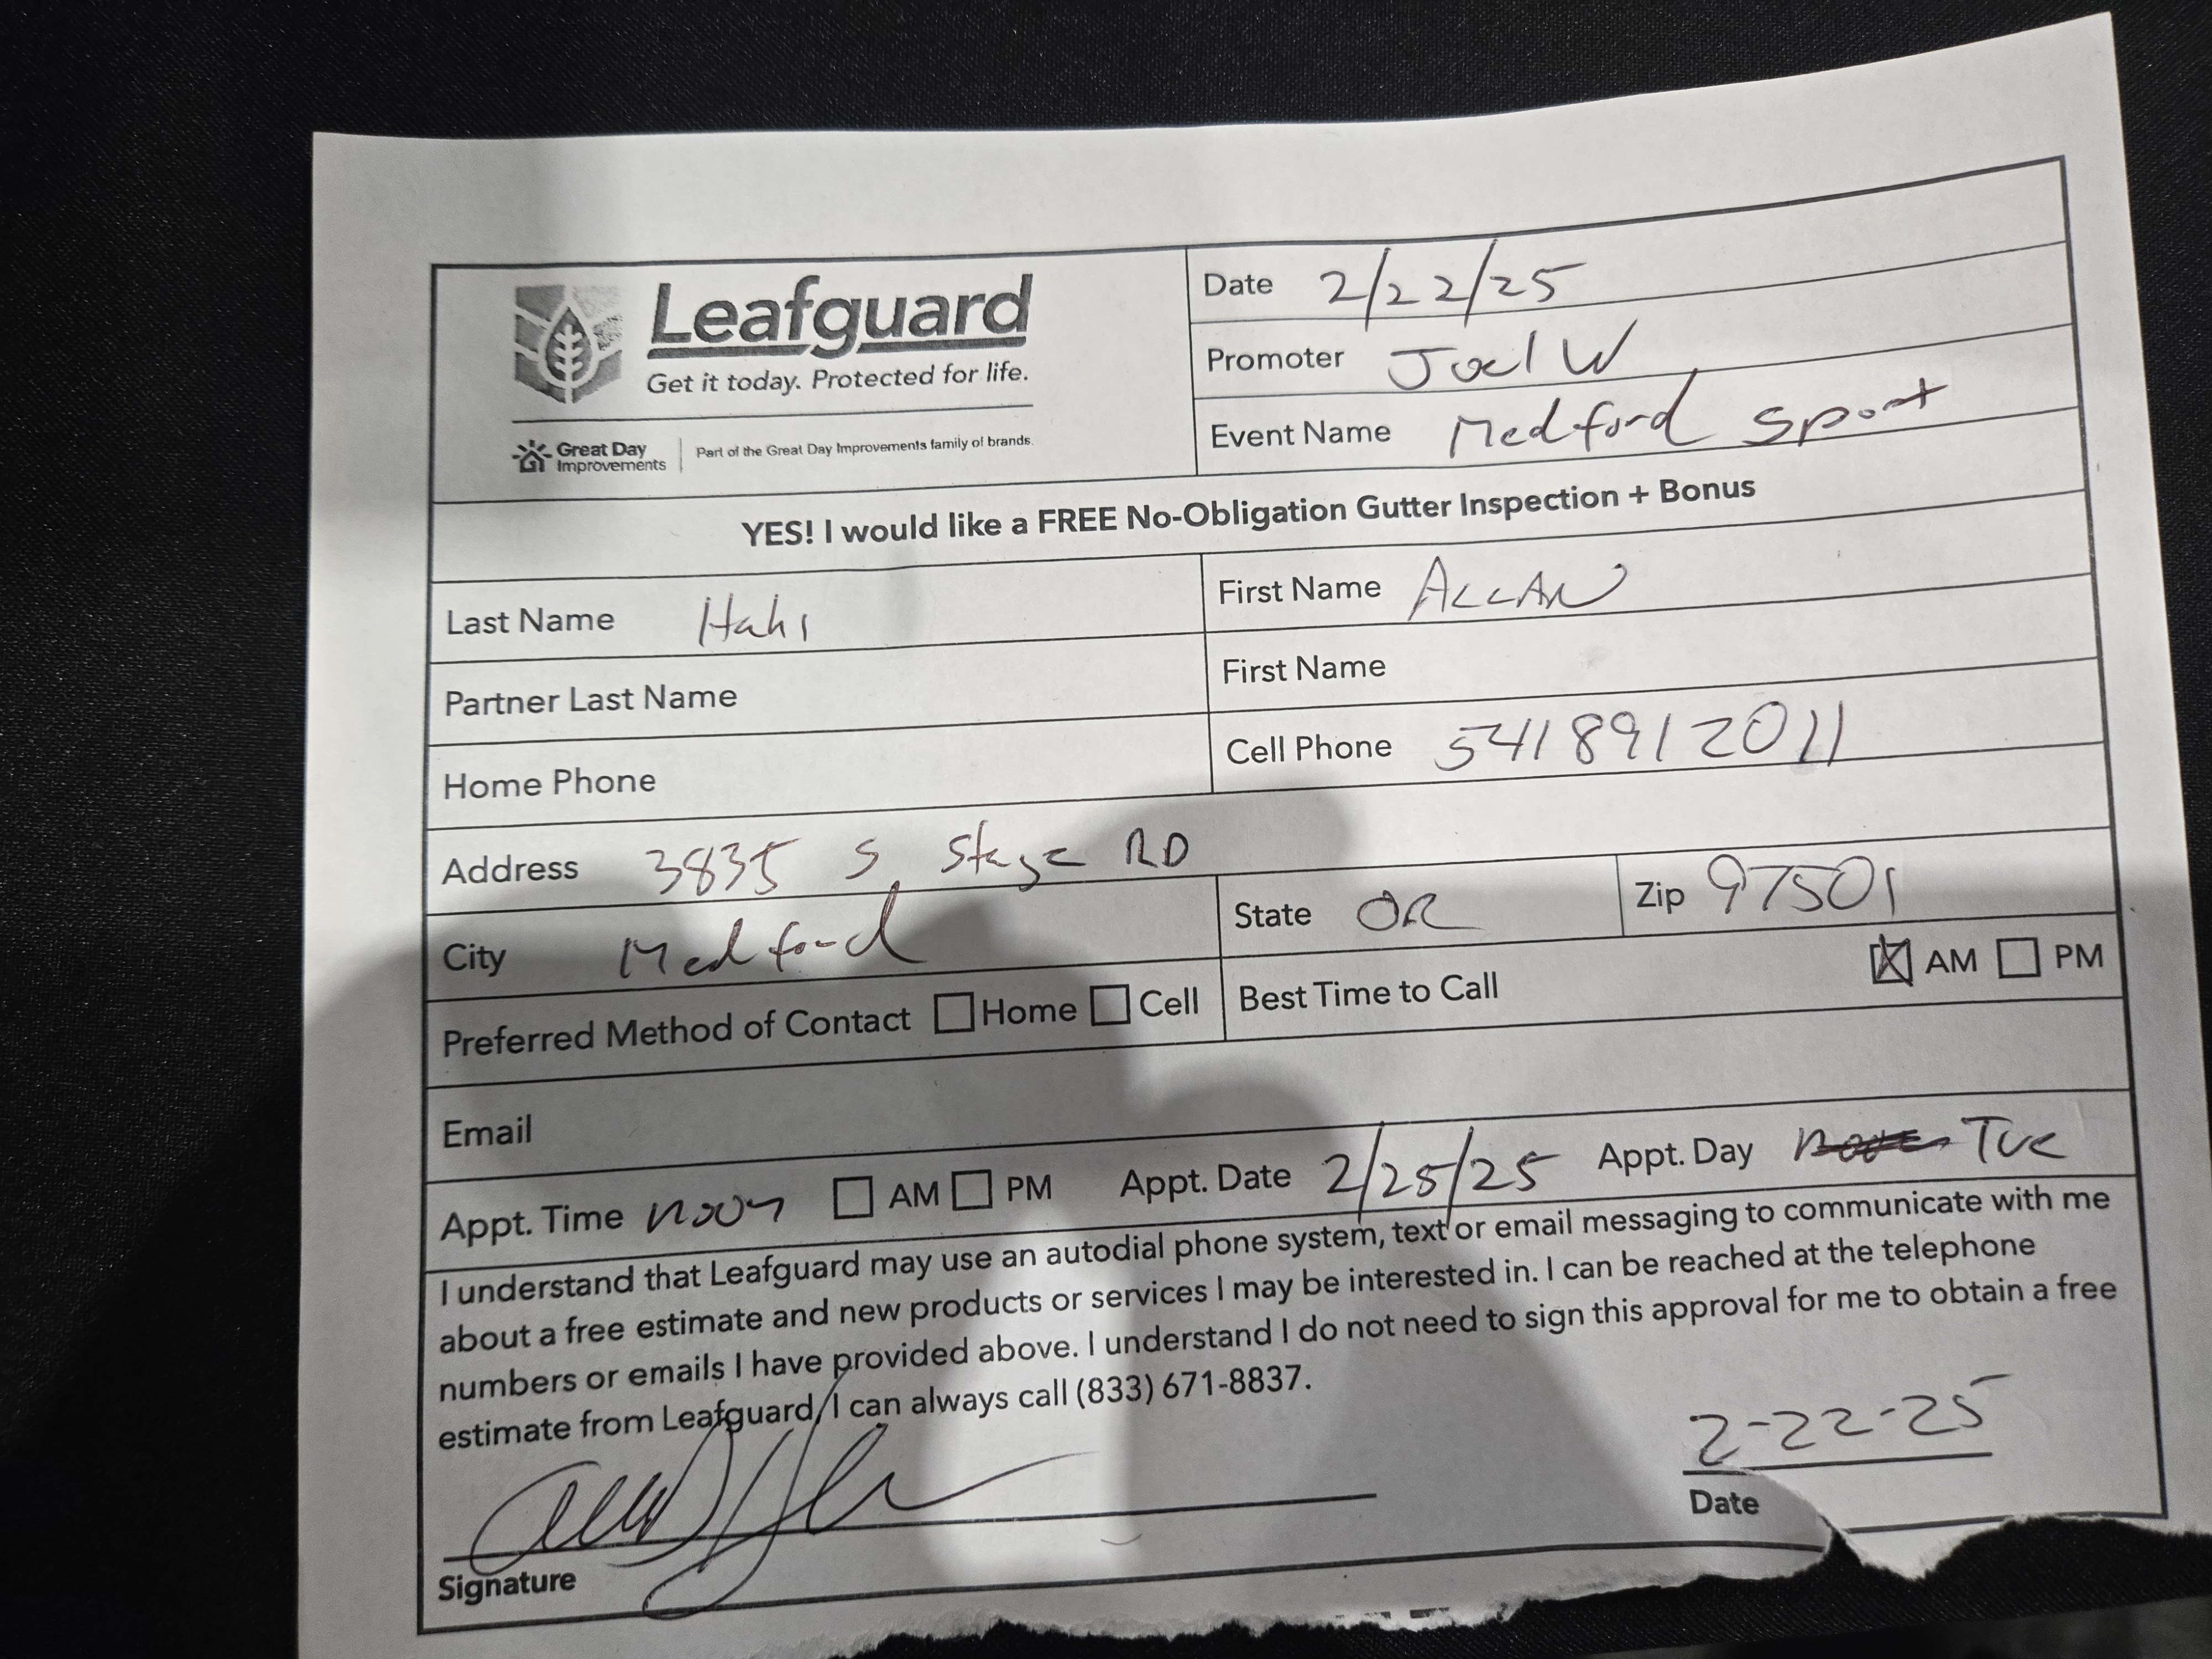 Leafguard
Get it today. Protected for life.
Great Day Improvements | Part of the Great Day Improvements family of brands.
Date 2/22/25
Promoter Joel W
Event Name Medford Sport
YES! I would like a FREE No-Obligation Gutter Inspection + Bonus
Last Name Hahn First Name ALLAN
Partner Last Name First Name
Home Phone Cell Phone 541 891 2011
Address 3835 S Stage RD
City Medford State OR Zip 97501
Preferred Method of Contact Home Cell Best Time to Call AM PM
Email
Appt. Time noon AM PM Appt. Date 2/25/25 Appt. Day Tue
I understand that Leafguard may use an autodial phone system, text or email messaging to communicate with me
about a free estimate and new products or services I may be interested in. I can be reached at the telephone
numbers or emails I have provided above. I understand I do not need to sign this approval for me to obtain a free
estimate from Leafguard, I can always call (833) 671-8837.
2-22-25
Signature Date